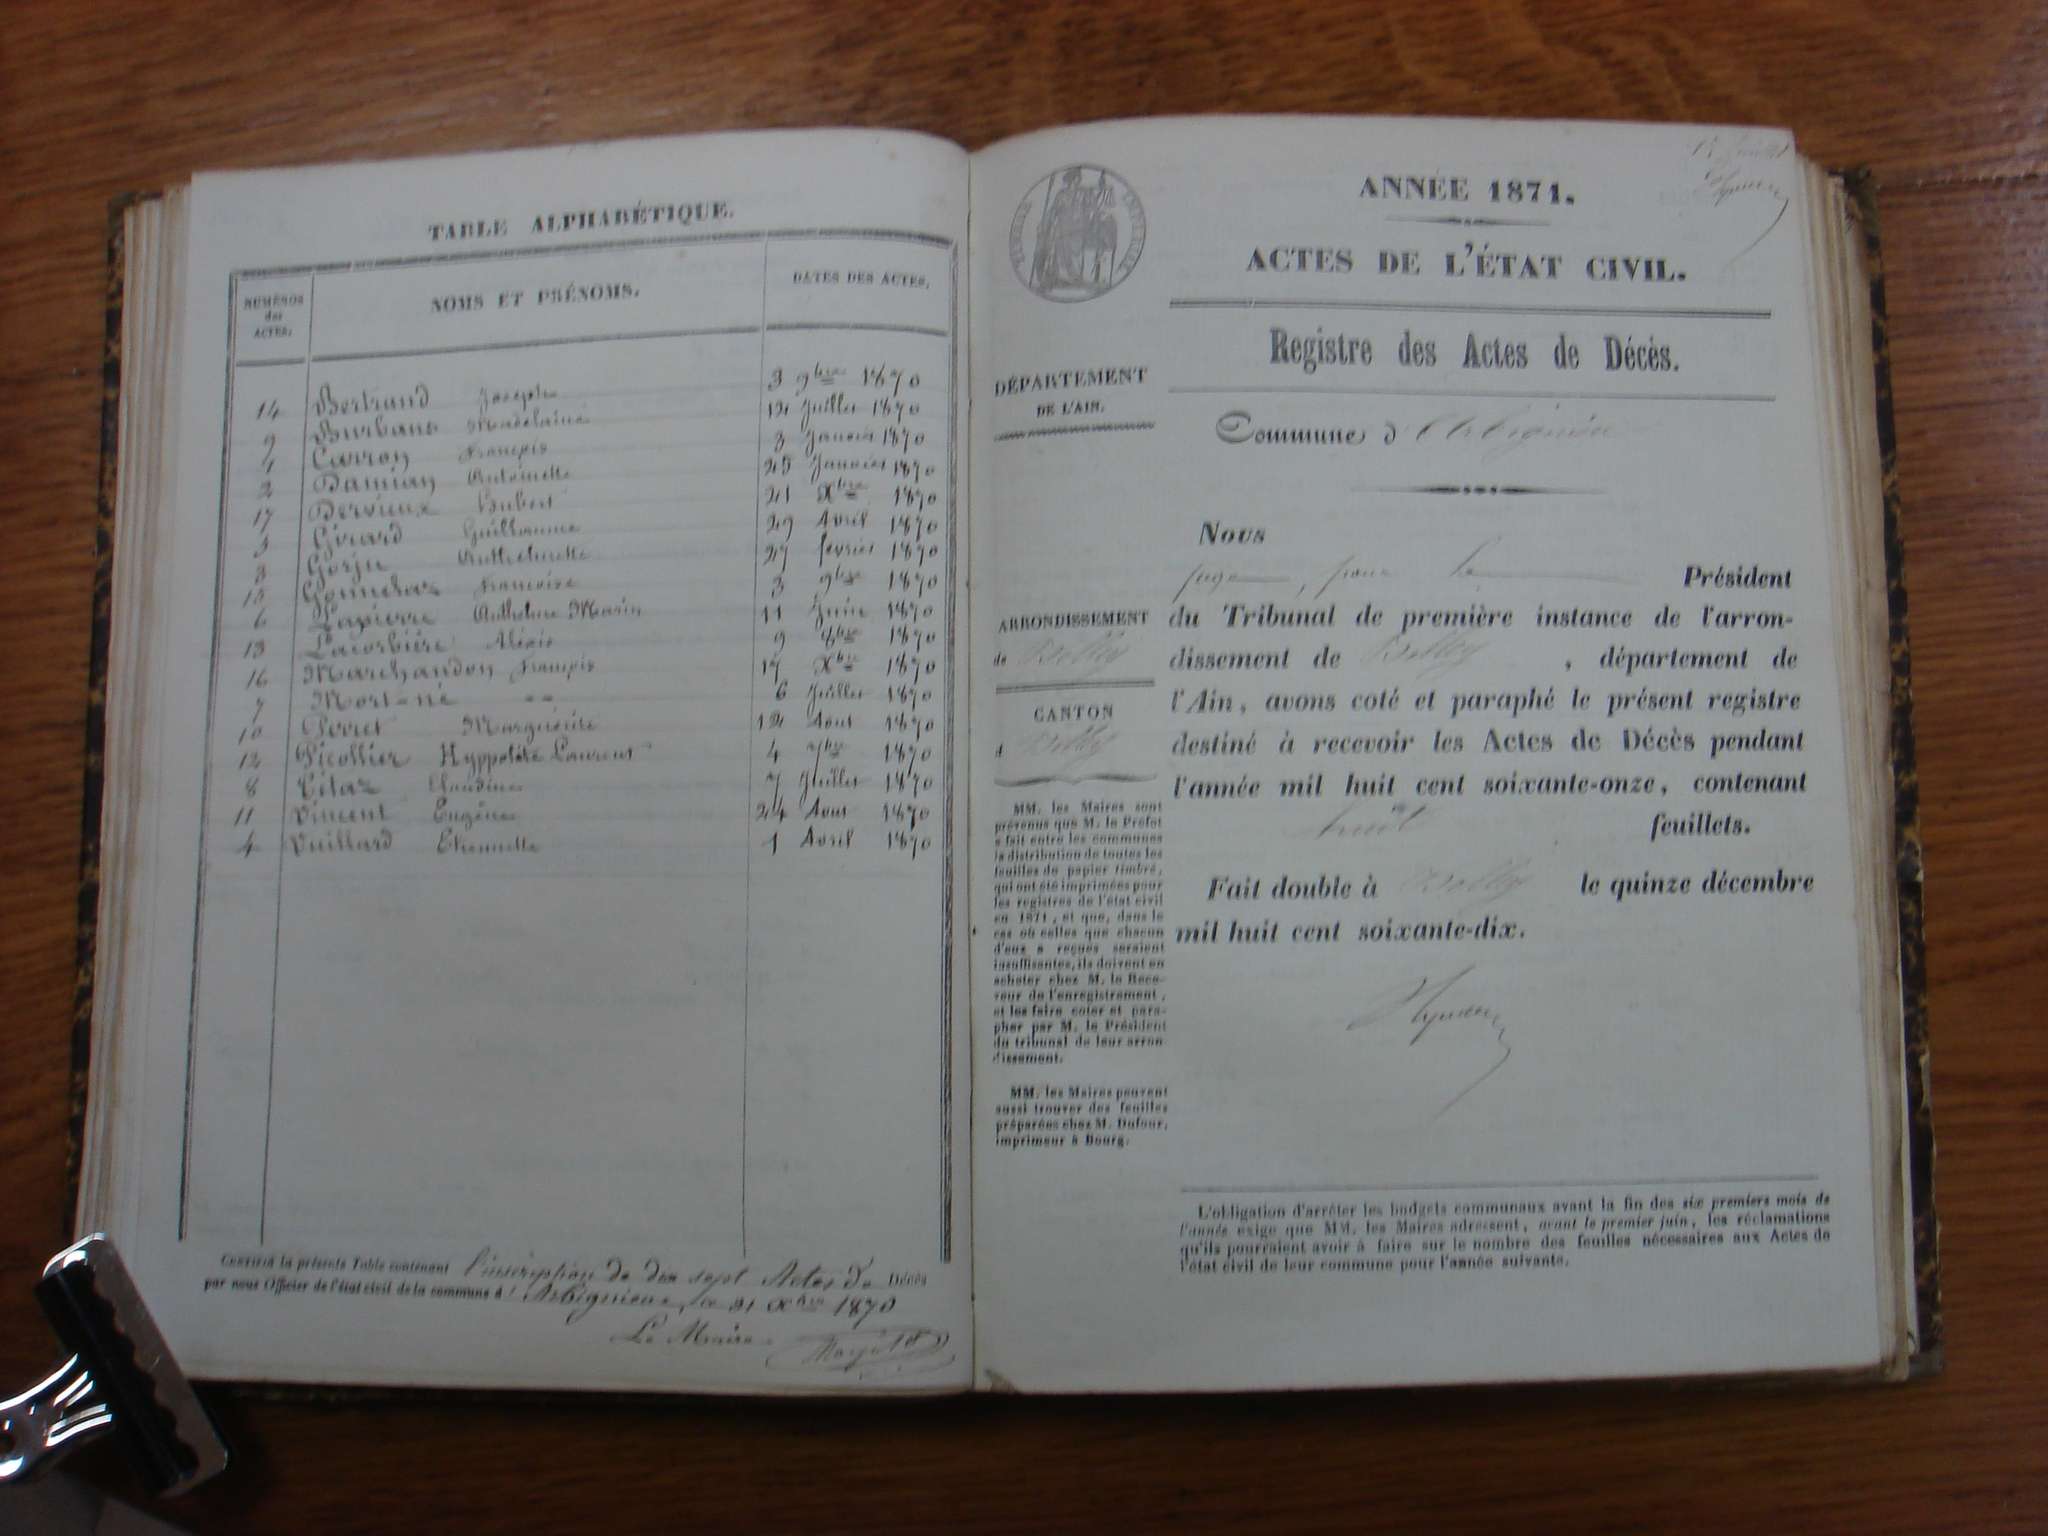 TABLE ALPHABÉTIQUE.
NUMÉROS des ACTES. NOMS ET PRÉNOMS. DATES DES ACTES.
14 Bertrand Joseph 3 9bre 1870
9 Burbano Madelaine 12 Juillet 1870
1 Carron François 3 Janvier 1870
2 Damian Antoinette 25 Janvier 1870
17 Dervieux Hubert 21 Xbre 1870
5 Girard Guillaume 29 Avril 1870
3 Gorju Anthelmette 27 fevrier 1870
15 Françoise 3 9bre 1870
6 Lapierre Anthelme Marin 11 Juin 1870
13 Lacorbière Aléxis 9 8bre 1870
16 Marchandon François 17 Xbre 1870
7 Mort-né 6 Juillet 1870
10 Perret Marguérite 12 Aout 1870
12 Picollier Hyppolite Laurent 4 7bre 1870
8 Claudine 7 Juillet 1870
11 Vincent Eugène 24 Aout 1870
4 Vuillard Etiennette 1 Avril 1870
CERTIFIÉ la présente Table contenant l'inscription de dix sept Actes de Décès
par nous Officier de l'état civil de la commune d'Arbignieu, le 31 Xbre 1870
Le Maire
ANNÉE 1871.
ACTES DE L'ÉTAT CIVIL.
Registre des Actes de Décès.
DÉPARTEMENT
DE L'AIN.
Commune d'Arbignieu
ARRONDISSEMENT
de Belley
CANTON
d Belley
MM. les Maires sont
prévenus que M. le Préfet
a fait entre les communes
la distribution de toutes les
feuilles de papier timbré,
qui ont été imprimées pour
les registres de l'état civil
en 1871, et que, dans le
cas où celles que chacun
d'eux a reçues seraient
insuffisantes, ils doivent en
acheter chez M. le Rece-
veur de l'enregistrement,
et les faire coter et para-
pher par M. le Président
du tribunal de leur arron-
dissement.
MM. les Maires peuvent
aussi trouver des feuilles
préparées chez M. Dufour,
imprimeur à Bourg.
Nous
juge, pour le Président
du Tribunal de première instance de l'arron-
dissement de Belley, département de
l'Ain, avons coté et paraphé le présent registre
destiné à recevoir les Actes de Décès pendant
l'année mil huit cent soixante-onze, contenant
huit feuillets.
Fait double à Belley le quinze décembre
mil huit cent soixante-dix.
L'obligation d'arrêter les budgets communaux avant la fin des six premiers mois de
l'année exige que MM. les Maires adressent, avant le premier juin, les réclamations
qu'ils pourraient avoir à faire sur le nombre des feuilles nécessaires aux Actes de
l'état civil de leur commune pour l'année suivante.